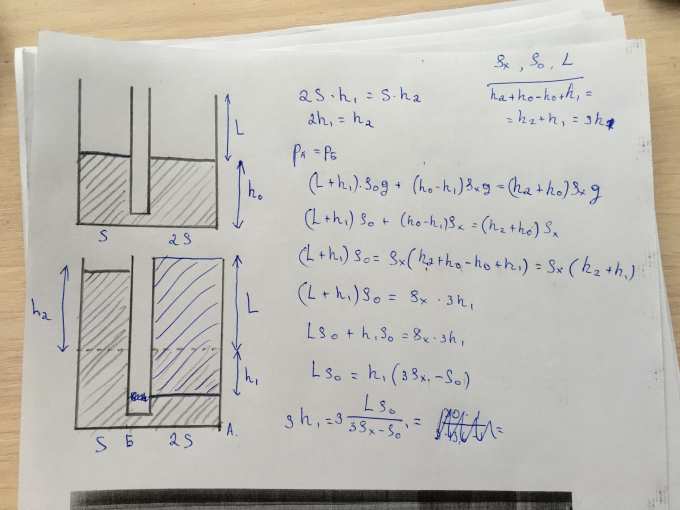 ρₓ, ρ₀, L
h₂+h₀-h₀+h₁ =
= h₂+h₁ = 3h₁
2S·h₁ = S·h₂
2h₁ = h₂
pА = pБ
(L+h₁)·ρ₀g + (h₀-h₁)ρₓg = (h₂+h₀)ρₓg
(L+h₁)ρ₀ + (h₀-h₁)ρₓ = (h₂+h₀)ρₓ
(L+h₁)ρ₀ = ρₓ(h₂+h₀-h₀+h₁) = ρₓ(h₂+h₁)
(L+h₁)ρ₀ = ρₓ·3h₁
Lρ₀ + h₁ρ₀ = ρₓ·3h₁
Lρ₀ = h₁(3ρₓ-ρ₀)
3h₁ = 3 Lρ₀ / 3ρₓ-ρ₀ = =
L
h₀
S 2S
h₂
L
h₁
S Б 2S А.